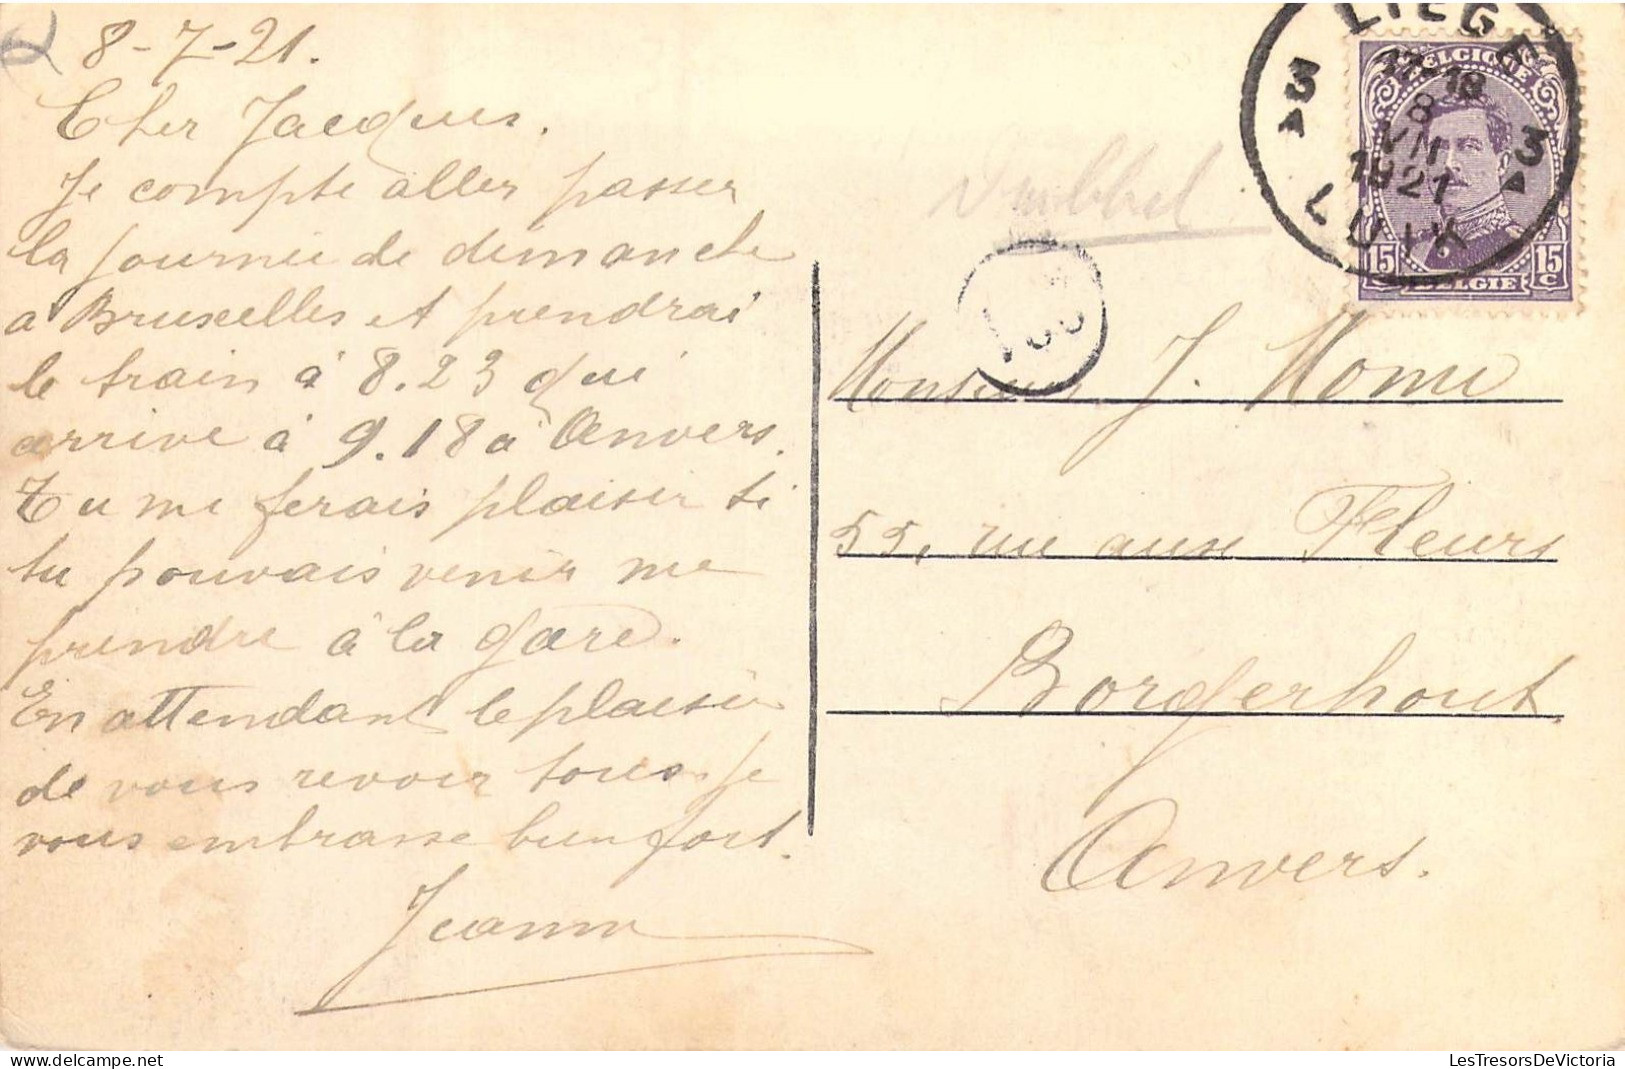 8-7-21.
Cher Jacques.
Je compte aller passer
la journée de dimanche
a Bruxelles et prendrai
le train à 8.23 qui
arrive à 9.18 a Anvers.
Tu me ferais plaisir si
tu pouvais venir me
prendre à la gare.
En attendant le plaisir
de vous revoir tous je
vous embrasse bien fort.
Jeanne
LIEGE
12-18
8
VII
1921
3
A
3
A
LUIK
BELGIQUE
15
C
15
C
BELGIE
Monsieur J.
55, rue aux Fleurs
Borgerhout.
Anvers.
LesTresorsDeVictoria